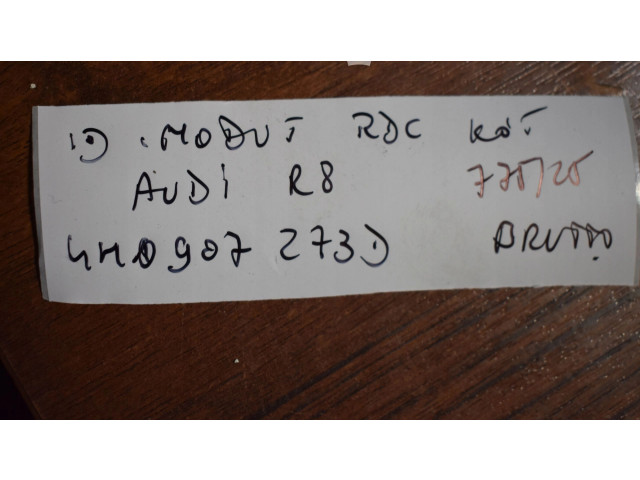 1) MODUŁ RDC KÓŁ
AUDI R8
4H0907 273D BRUTTO